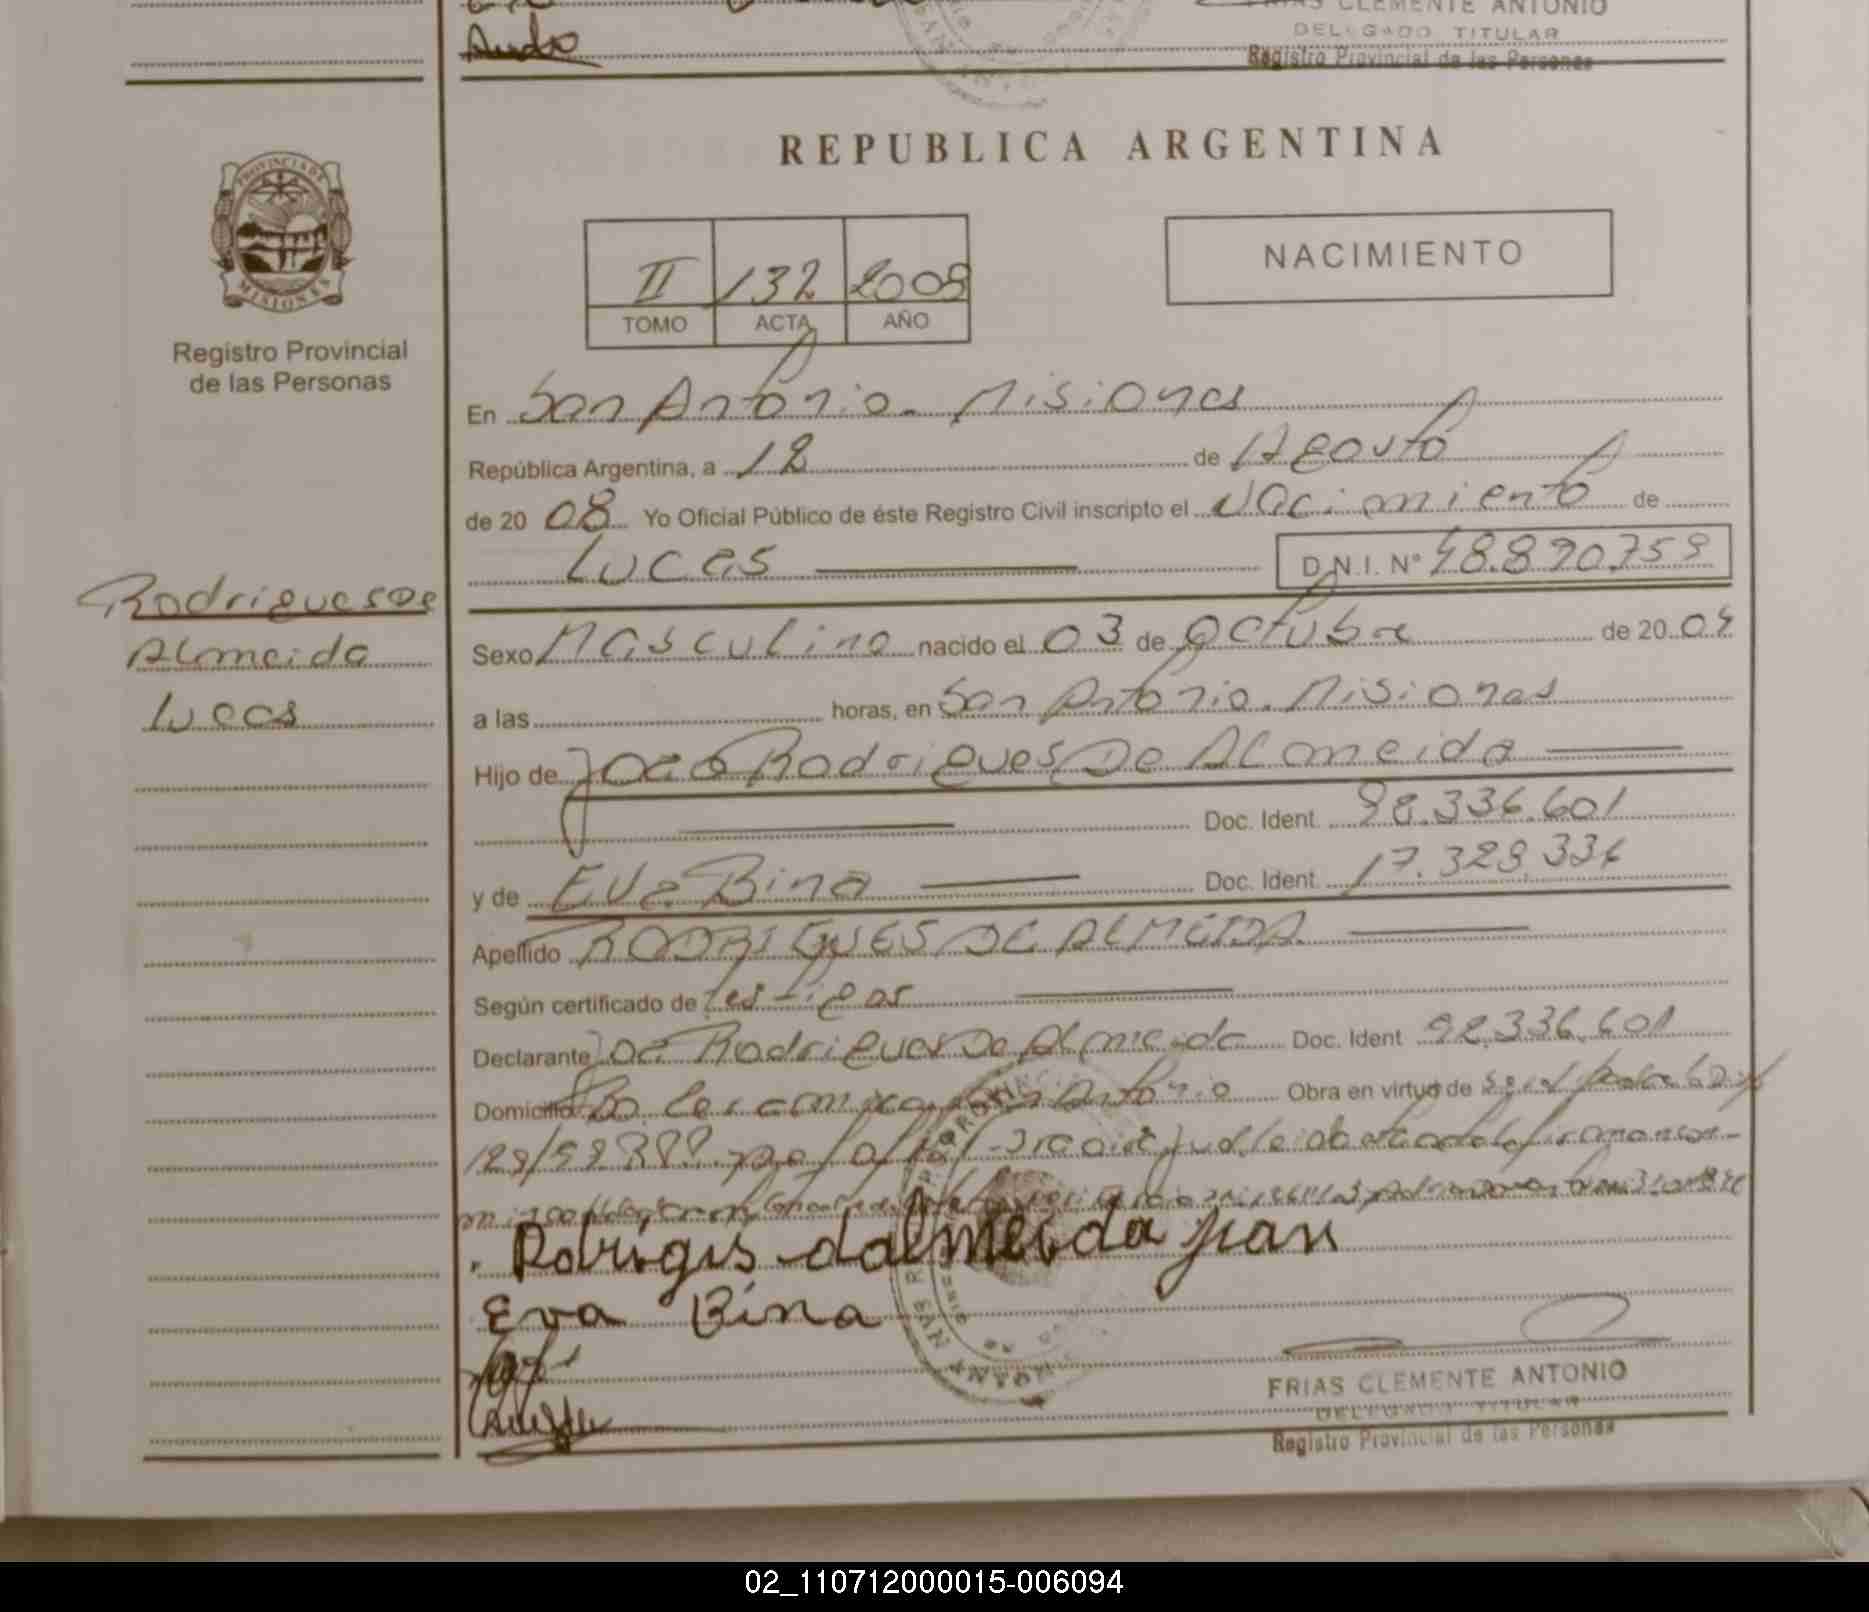 FRIAS CLEMENTE ANTONIO
DELEGADO TITULAR
Registro Provincial de las Personas
REPUBLICA ARGENTINA
PROVINCIA DE
MISIONES
Registro Provincial
de las Personas
II 132 2008
TOMO ACTA AÑO
NACIMIENTO
En San Antonio - Misiones
República Argentina, a 12 de Agosto
de 20 08 Yo Oficial Público de éste Registro Civil inscripto el Nacimiento de
Lucas D.N.I. Nº 48.890.759
Rodrigues De
Almeida
Lucas
Sexo Masculino nacido el 03 de Octubre de 20 04
a las horas, en San Antonio. Misiones
Hijo de Joao Rodrigues De Almeida
Doc. Ident. 92.336.601
y de Eva Bina Doc. Ident. 17.329.336
Apellido RODRIGUES DE ALMEIDA
Según certificado de testigos
Declarante Joao Rodrigues De Almeida Doc. Ident 92.336.601
Domicilio San Antonio Obra en virtud de
Rodrigis dalmeida juan
Eva Bina
FRIAS CLEMENTE ANTONIO
DELEGADO TITULAR
Registro Provincial de las Personas
02_110712000015-006094